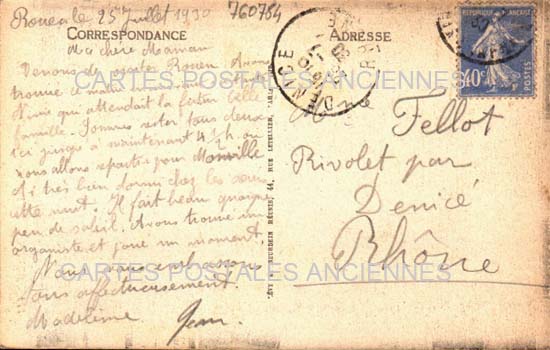 Rouen le 25 Juillet 1930
760784
CORRESPONDANCE
ADRESSE
Ma chère Maman
Venons de visiter Rouen. Avons
trouvé ce matin
qui attendait la future belle
famille. Sommes rester tous deux
ici jusqu'à maintenant 4h
nous allons repartir pour Monville
Ai très bien dormi chez les
cette nuit. Il fait beau quoique
peu de soleil. Avons trouvé un
organiste et joué un moment
Nous vous embrassons
tous affectueusement
Madeleine Jean
Mme Fellot
Rivolet par
Denicé
Rhône
DENICE
RHONE
REPUBLIQUE FRANÇAISE
40c
POSTES
LEVY & NEURDEIN RÉUNIS, 44, RUE LETELLIER, PARIS
CARTES POSTALES ANCIENNES
CARTES POSTALES ANCIENNES